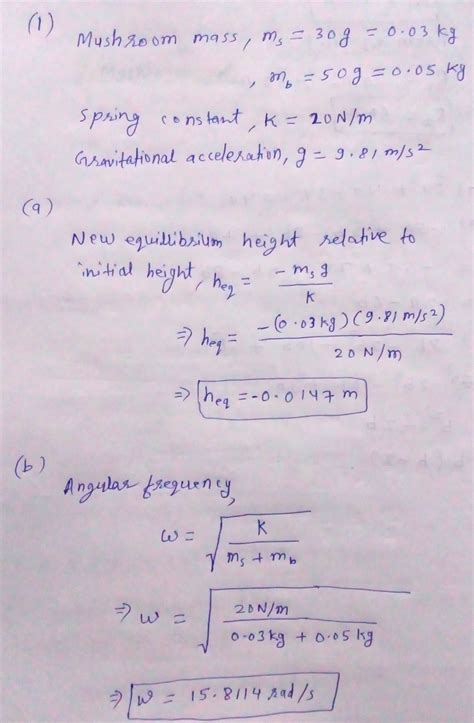 (1)
Mushroom mass, m_s = 30g = 0.03 kg
, m_b = 50g = 0.05 kg
Spring constant, K = 20N/m
Gravitational acceleration, g = 9.81 m/s²
(a)
New equillibrium height relative to
initial height, h_eq = -m_s g / K
⇒ h_eq = -(0.03kg)(9.81 m/s²) / 20 N/m
⇒ h_eq = -0.0147 m
(b)
Angular frequency,
ω = √(K / (m_s + m_b))
⇒ ω = √(20N/m / (0.03kg + 0.05kg))
⇒ ω = 15.8114 rad/s